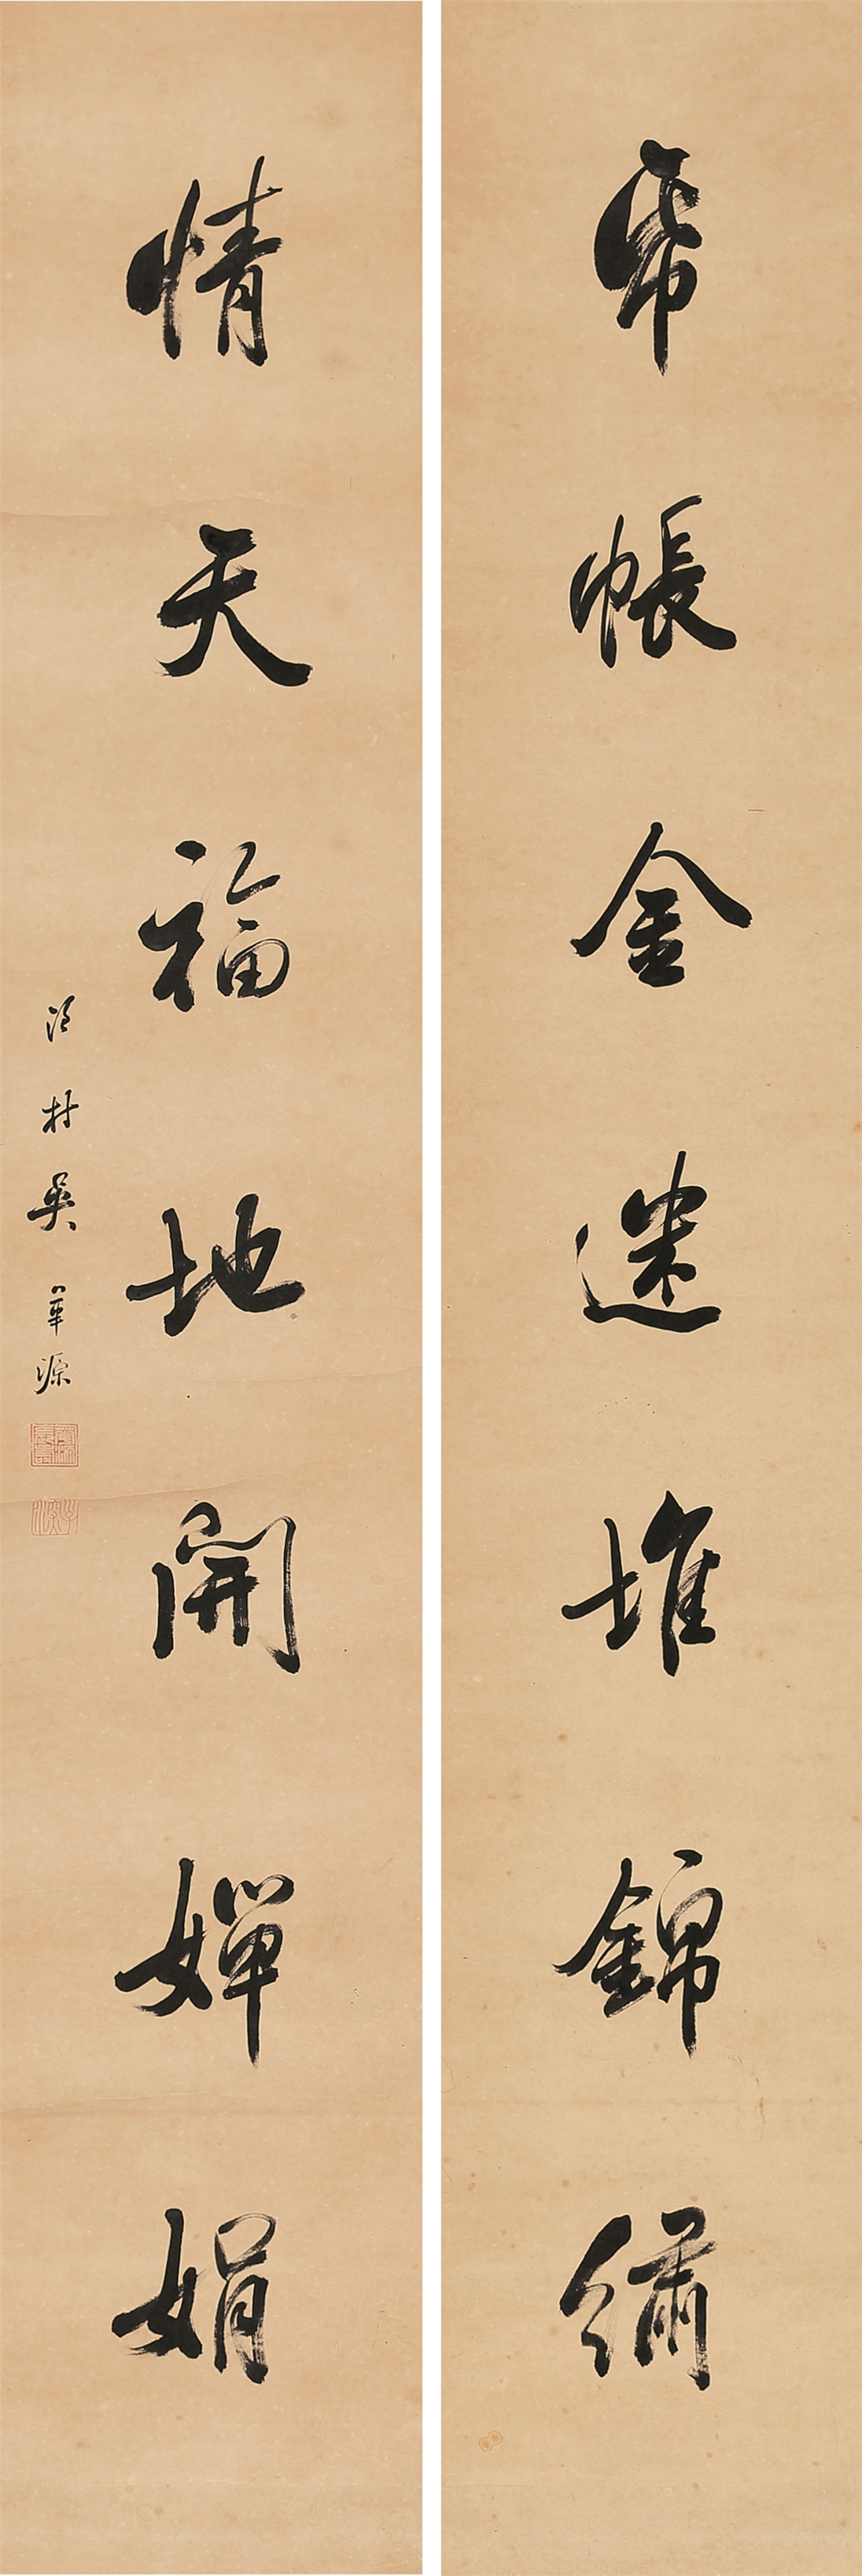 帋帳金迷堆錦繡
情天福地開嬋娟
村吳華源